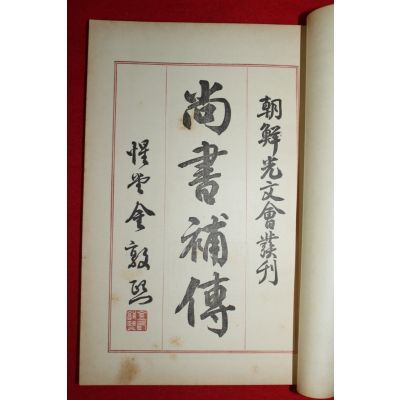 朝鮮光文會叢刊
尚書補傳
惺堂金敦熙